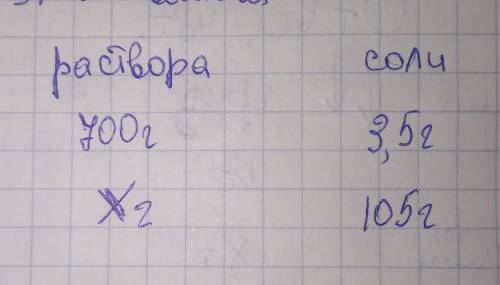 раствора соли
700г 3,5г
Xг 105г